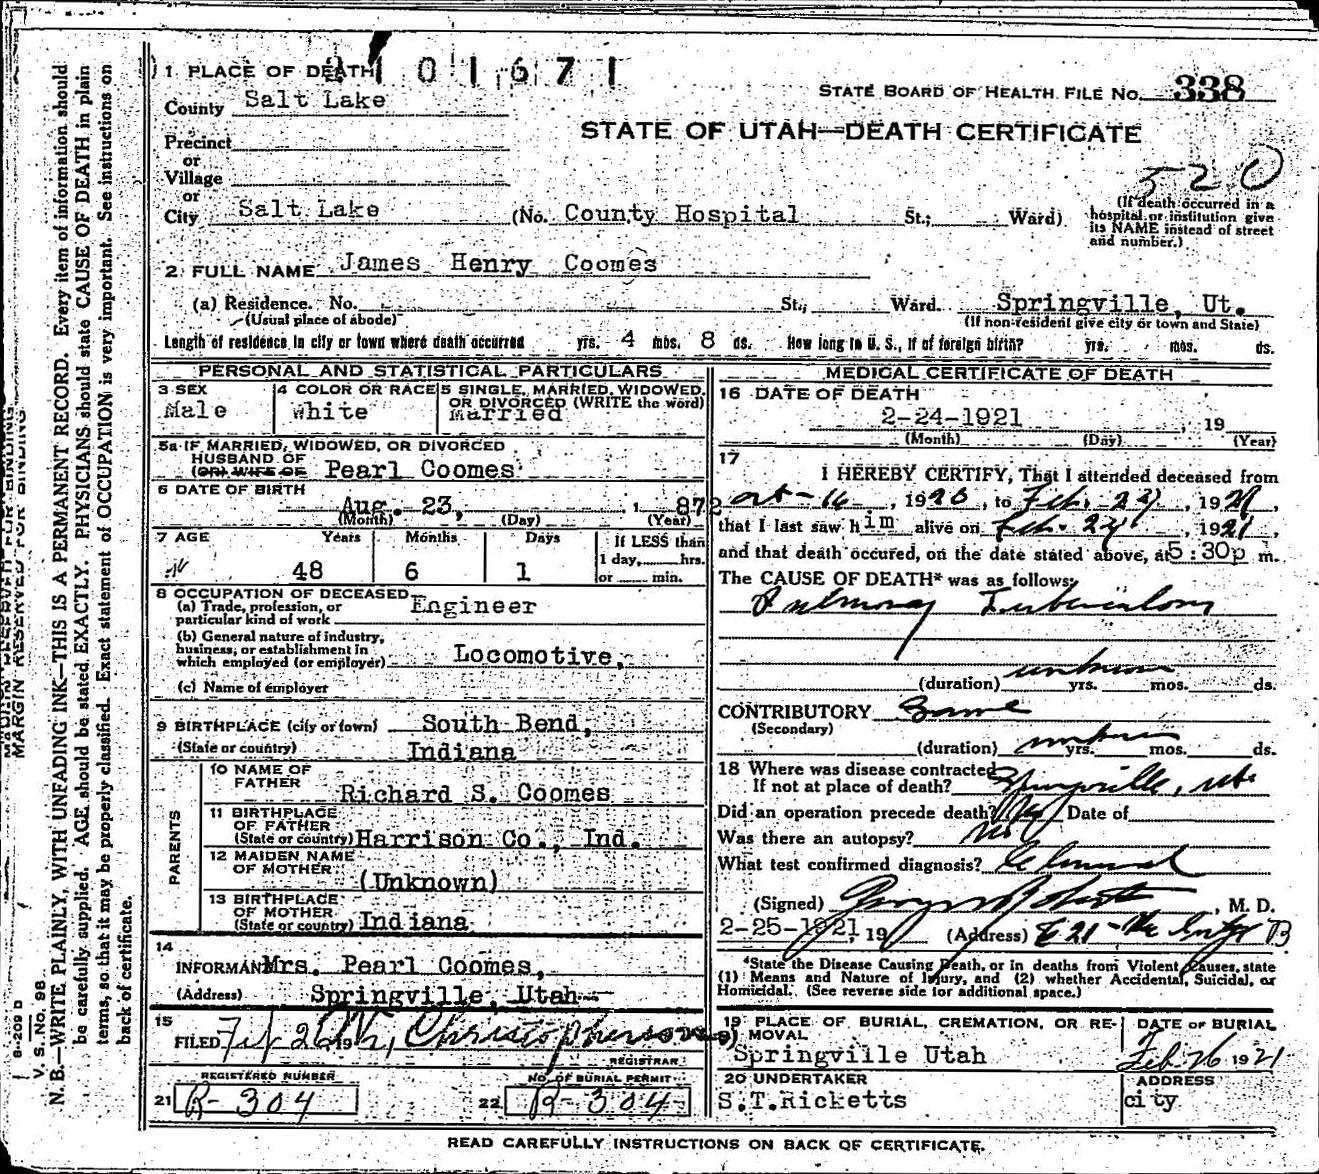 2101671
1 PLACE OF DEATH
STATE BOARD OF HEALTH FILE No. 338
County Salt Lake
STATE OF UTAH—DEATH CERTIFICATE
Precinct
or
Village
520
or
City Salt Lake (No. County Hospital St.; Ward)
(If death occurred in a hospital or institution give its NAME instead of street and number.)
2. FULL NAME James Henry Coomes
(a) Residence. No. St., Ward. Springville, Ut.
(Usual place of abode) (If non-resident give city or town and State)
Length of residence in city or town where death occurred yrs. 4 mos. 8 ds. How long in U. S., if of foreign birth? yrs. mos. ds.
PERSONAL AND STATISTICAL PARTICULARS
3 SEX
Male
4 COLOR OR RACE
White
5 SINGLE, MARRIED, WIDOWED, OR DIVORCED (WRITE the word)
Married
5a IF MARRIED, WIDOWED, OR DIVORCED
HUSBAND OF
(OR) WIFE OF Pearl Coomes
6 DATE OF BIRTH
Aug. 23, 1872
(Month) (Day) (Year)
7 AGE Years Months Days If LESS than
1 day, hrs.
48 6 1 or min.
8 OCCUPATION OF DECEASED
(a) Trade, profession, or particular kind of work Engineer
(b) General nature of industry, business, or establishment in which employed (or employer) Locomotive,
(c) Name of employer
9 BIRTHPLACE (city or town) South Bend,
(State or country) Indiana
PARENTS
10 NAME OF FATHER Richard S. Coomes
11 BIRTHPLACE OF FATHER (State or country) Harrison Co., Ind.
12 MAIDEN NAME OF MOTHER (Unknown)
13 BIRTHPLACE OF MOTHER (State or country) Indiana
14
INFORMANT Mrs. Pearl Coomes,
(Address) Springville, Utah
15
FILED Feb 26 19 Christopherson
REGISTRAR
REGISTERED NUMBER
21 R-304
NO. OF BURIAL PERMIT
22 R-304
MEDICAL CERTIFICATE OF DEATH
16 DATE OF DEATH
2-24-1921, 19
(Month) (Day) (Year)
17
I HEREBY CERTIFY, That I attended deceased from
Oct-16, 1920, to Feb. 24, 1921,
that I last saw him alive on Feb. 24, 1921,
and that death occured, on the date stated above, at 5:30p m.
The CAUSE OF DEATH* was as follows:
Pulmonary Tuberculosis
(duration) unknown yrs. mos. ds.
CONTRIBUTORY Same
(Secondary)
(duration) unknown yrs. mos. ds.
18 Where was disease contracted
If not at place of death? Springville, Ut.
Did an operation precede death? No Date of
Was there an autopsy? No
What test confirmed diagnosis?
(Signed) , M. D.
2-25-1921, 19 (Address)
*State the Disease Causing Death, or in deaths from Violent Causes, state
(1) Means and Nature of Injury, and (2) whether Accidental, Suicidal, or
Homicidal. (See reverse side for additional space.)
19 PLACE OF BURIAL, CREMATION, OR REMOVAL
Springville Utah
DATE OF BURIAL
Feb 26 1921
20 UNDERTAKER
S.T.Ricketts
ADDRESS
city
READ CAREFULLY INSTRUCTIONS ON BACK OF CERTIFICATE.
MARGIN RESERVED FOR BINDING
N. B.—WRITE PLAINLY, WITH UNFADING INK—THIS IS A PERMANENT RECORD. Every item of information should
be carefully supplied. AGE should be stated EXACTLY. PHYSICIANS should state CAUSE OF DEATH in plain
terms, so that it may be properly classified. Exact statement of OCCUPATION is very important. See instructions on
back of certificate.
V. S. No. 98
8-209 b